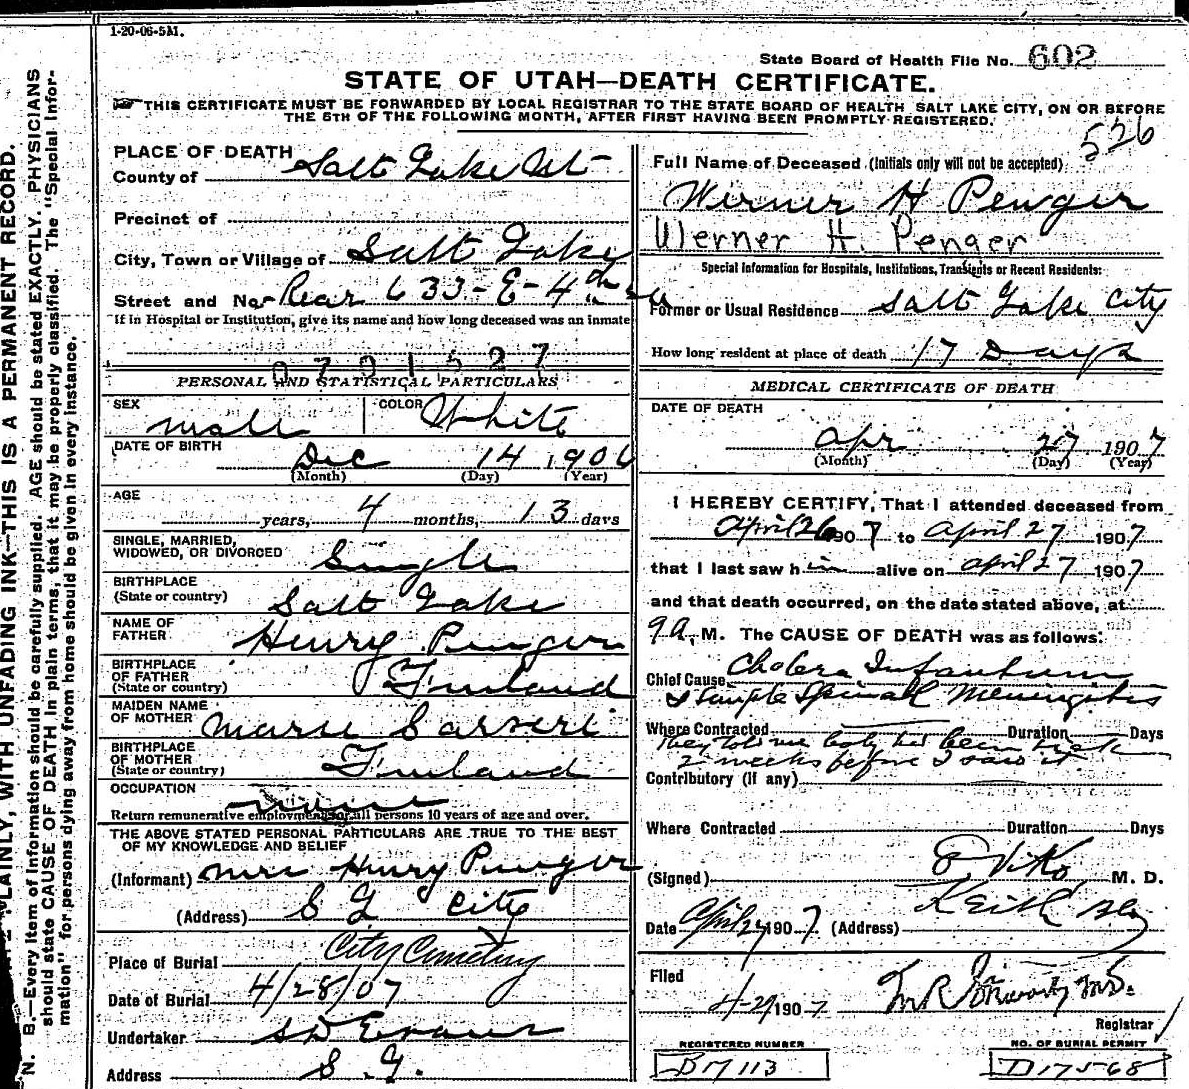 1-20-06-5M.
State Board of Health File No. 602
STATE OF UTAH—DEATH CERTIFICATE.
THIS CERTIFICATE MUST BE FORWARDED BY LOCAL REGISTRAR TO THE STATE BOARD OF HEALTH SALT LAKE CITY, ON OR BEFORE
THE 5TH OF THE FOLLOWING MONTH, AFTER FIRST HAVING BEEN PROMPTLY REGISTERED.
526
PLACE OF DEATH
County of Salt Lake
Precinct of
City, Town or Village of Salt Lake
Street and No. Rear 633-E-4th
If in Hospital or Institution, give its name and how long deceased was an inmate
0701527
PERSONAL AND STATISTICAL PARTICULARS
SEX Male COLOR White
DATE OF BIRTH
Dec 14 1906
(Month) (Day) (Year)
AGE
years, 4 months, 13 days
SINGLE, MARRIED,
WIDOWED, OR DIVORCED Single
BIRTHPLACE
(State or country) Salt Lake
NAME OF
FATHER Henry Penger
BIRTHPLACE
OF FATHER
(State or country) Finland
MAIDEN NAME
OF MOTHER Marie
BIRTHPLACE
OF MOTHER
(State or country) Finland
OCCUPATION
none
Return remunerative employment for all persons 10 years of age and over.
THE ABOVE STATED PERSONAL PARTICULARS ARE TRUE TO THE BEST
OF MY KNOWLEDGE AND BELIEF
(Informant) Mrs Henry Penger
(Address) S L City
Place of Burial City Cemetery
Date of Burial 4/28/07
Undertaker S D Evans
Address S. L.
Full Name of Deceased (Initials only will not be accepted)
Werner H Penger
Werner H. Penger
Special Information for Hospitals, Institutions, Transients or Recent Residents:
Former or Usual Residence Salt Lake City
How long resident at place of death 17 Days
MEDICAL CERTIFICATE OF DEATH
DATE OF DEATH
Apr 27 1907
(Month) (Day) (Year)
I HEREBY CERTIFY, That I attended deceased from
April 26 1907 to April 27 1907
that I last saw him alive on April 27 1907
and that death occurred, on the date stated above, at
9 a. M. The CAUSE OF DEATH was as follows:
Chief Cause Cholera Infantum
& Simple Spinal Meningitis
Where Contracted Duration Days
They told me baby had been sick
2 weeks before I saw it
Contributory (if any)
Where Contracted Duration Days
(Signed) E Viko M. D.
Date April 27 1907 (Address) Keith Blg
Filed
4-29 1907
Registrar
REGISTERED NUMBER
B17113
NO. OF BURIAL PERMIT
D17568
N. B.—Every item of information should be carefully supplied. AGE should be stated EXACTLY. PHYSICIANS
should state CAUSE OF DEATH in plain terms, that it may be properly classified. The "Special Infor-
mation" for persons dying away from home should be given in every instance.
PLAINLY, WITH UNFADING INK—THIS IS A PERMANENT RECORD.